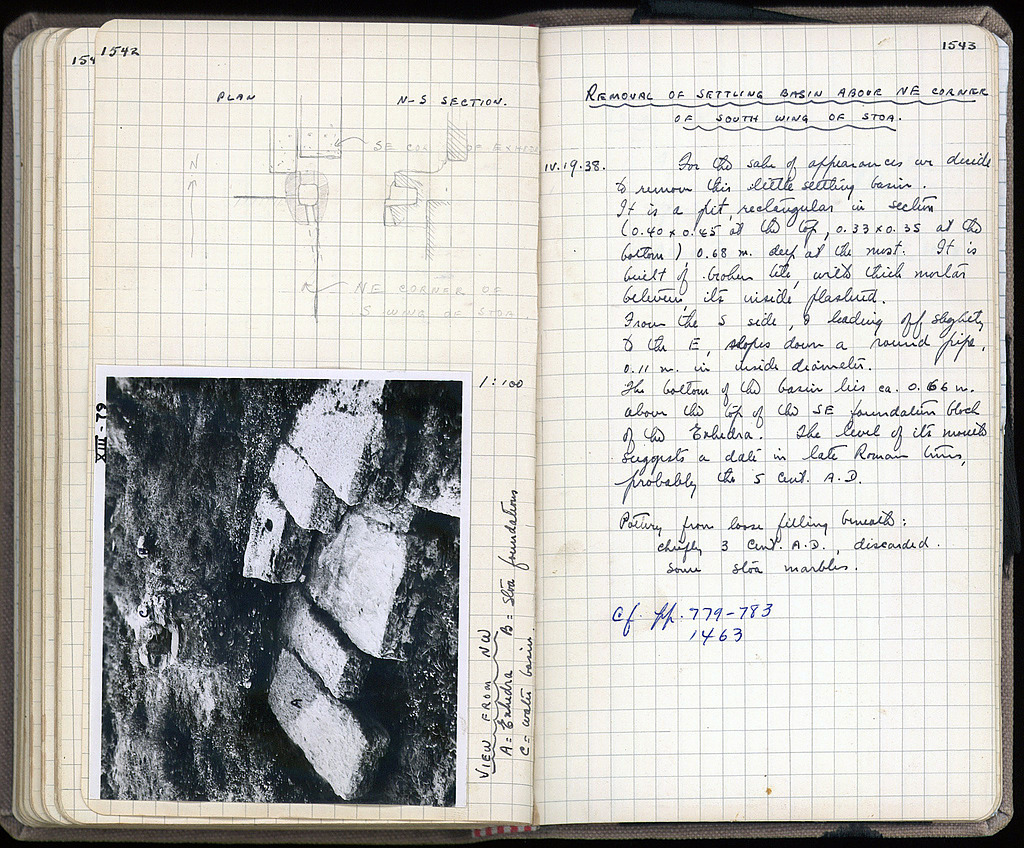 154
1542
PLAN
N-S SECTION.
SE COR OF EXHED
N
NE CORNER OF
S WING OF STOA.
1:100
XIII-79
VIEW FROM NW
A = Exhedra B = Stoa foundations
C = water basin.
A
C
1543
REMOVAL OF SETTLING BASIN ABOVE NE CORNER
OF SOUTH WING OF STOA.
IV.19.38. For the sake of appearances we decide
to remove this little settling basin.
It is a pit, rectangular in section
(0.40 x 0.45 at the top, 0.33 x 0.35 at the
bottom) 0.68 m. deep at the most. It is
built of broken tile, with thick mortar
between, its inside plastered.
From the S side, leading off slightly
to the E, slopes down a round pipe,
0.11 m. in inside diameter.
The bottom of the basin lies ca. 0.66 m.
above the top of the SE foundation block
of the Exhedra. The level of its mouth
suggests a date in late Roman times,
probably the 5 cent. A.D.
Pottery from loose filling beneath:
chiefly 3 cent. A.D., discarded.
Some stoa marbles.
Cf. pp. 779-783
1463